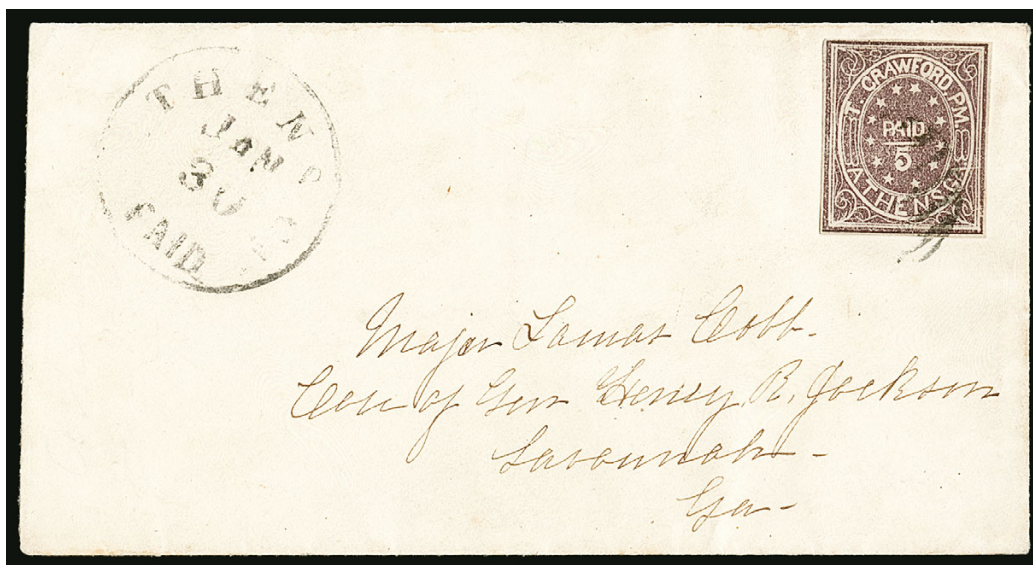 THENS
JAN
30
PAID
T. CRAWFORD, P.M.
PAID
5
ATHENS, GA.
Major Lamar Cobb.
Care of Gen Henry R. Jackson
Savannah -
Ga -